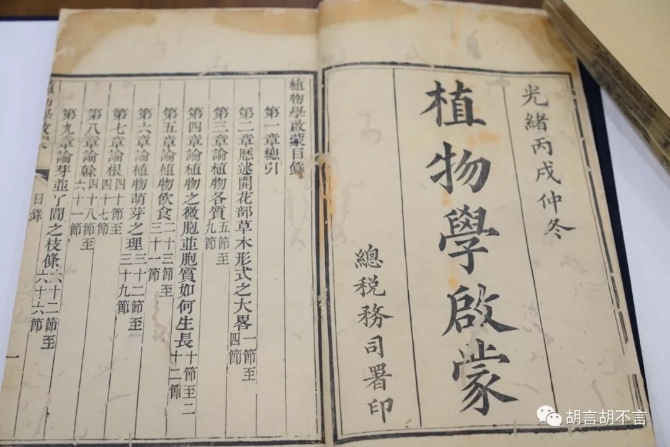 光緒丙戌仲冬
植物學啟蒙
總稅務司署印
植物學啟蒙目錄
第一章總引
第二章歷述開花部草木形式之大畧一節至四節
第三章論植物各質五節至九節
第四章論植物之微胞並胞質如何生長十節至二十二節
第五章論植物飲食二十三節至三十一節
第六章論植物萌芽之理三十二節至三十九節
第七章論根四十節至四十七節
第八章論榦四十八節至六十一節
第九章論芽並丫間之枝條六十二節至六十六節
目錄
一
胡言胡不言